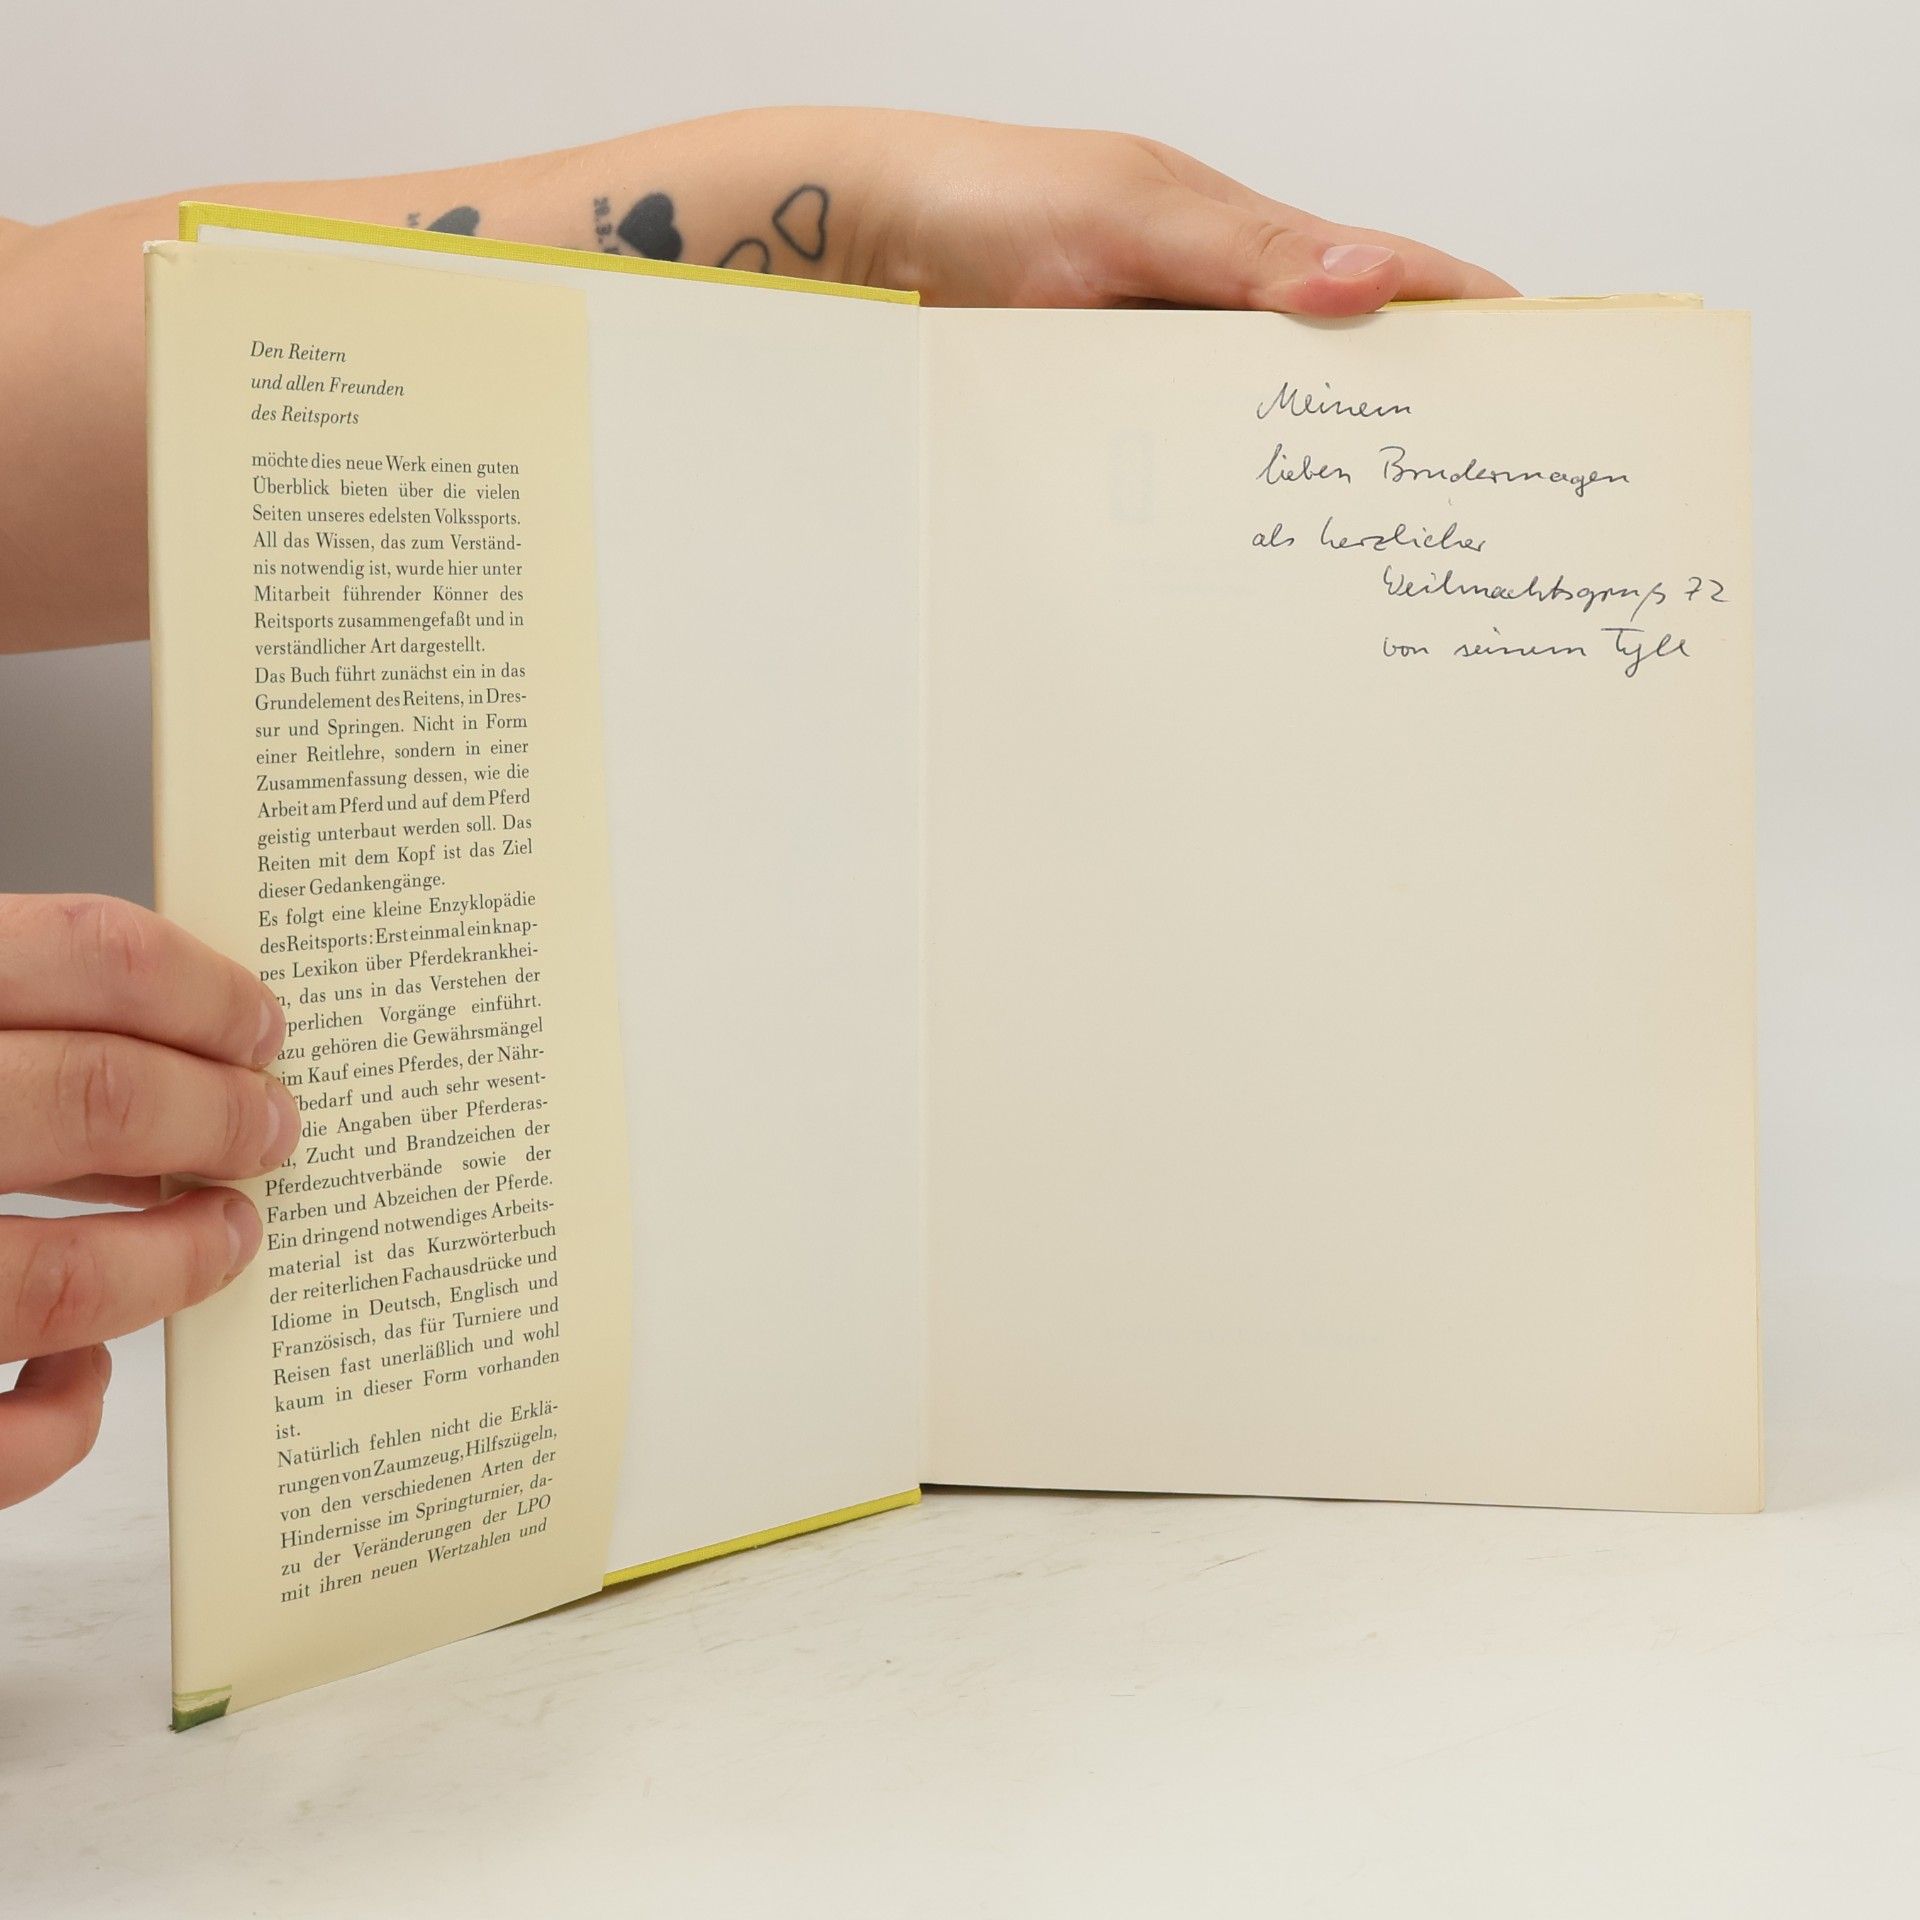 Den Reitern
und allen Freunden
des Reitsports
möchte dies neue Werk einen guten
Überblick bieten über die vielen
Seiten unseres edelsten Volkssports.
All das Wissen, das zum Verständ-
nis notwendig ist, wurde hier unter
Mitarbeit führender Könner des
Reitsports zusammengefaßt und in
verständlicher Art dargestellt.
Das Buch führt zunächst ein in das
Grundelement des Reitens, in Dres-
sur und Springen. Nicht in Form
einer Reitlehre, sondern in einer
Zusammenfassung dessen, wie die
Arbeit am Pferd und auf dem Pferd
geistig unterbaut werden soll. Das
Reiten mit dem Kopf ist das Ziel
dieser Gedankengänge.
Es folgt eine kleine Enzyklopädie
des Reitsports: Erst einmal ein knap-
pes Lexikon über Pferdekrankhei-
n, das uns in das Verstehen der
rperlichen Vorgänge einführt.
azu gehören die Gewährsmängel
im Kauf eines Pferdes, der Nähr-
fbedarf und auch sehr wesent-
die Angaben über Pferderas-
n, Zucht und Brandzeichen der
Pferdezuchtverbände sowie der
Farben und Abzeichen der Pferde.
Ein dringend notwendiges Arbeits-
material ist das Kurzwörterbuch
der reiterlichen Fachausdrücke und
Idiome in Deutsch, Englisch und
Französisch, das für Turniere und
Reisen fast unerläßlich und wohl
kaum in dieser Form vorhanden
ist.
Natürlich fehlen nicht die Erklä-
rungen von Zaumzeug, Hilfszügeln,
von den verschiedenen Arten der
Hindernisse im Springturnier, da-
zu der Veränderungen der LPO
mit ihren neuen Wertzahlen und
Meinem
lieben Brudermagen
als herzlicher
Weihnachtsgruß 72
von seinem Tyll